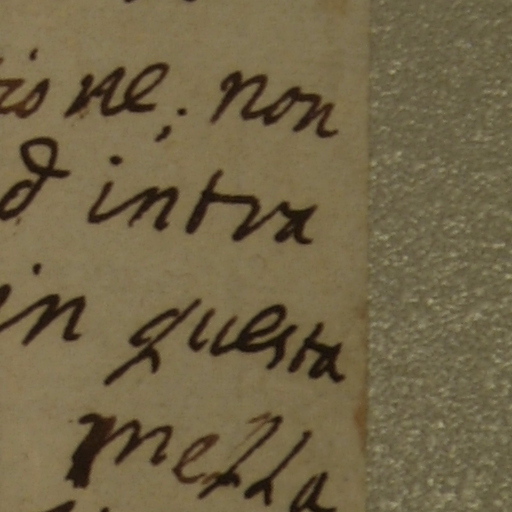 tione; non
d intra
in questa
messa